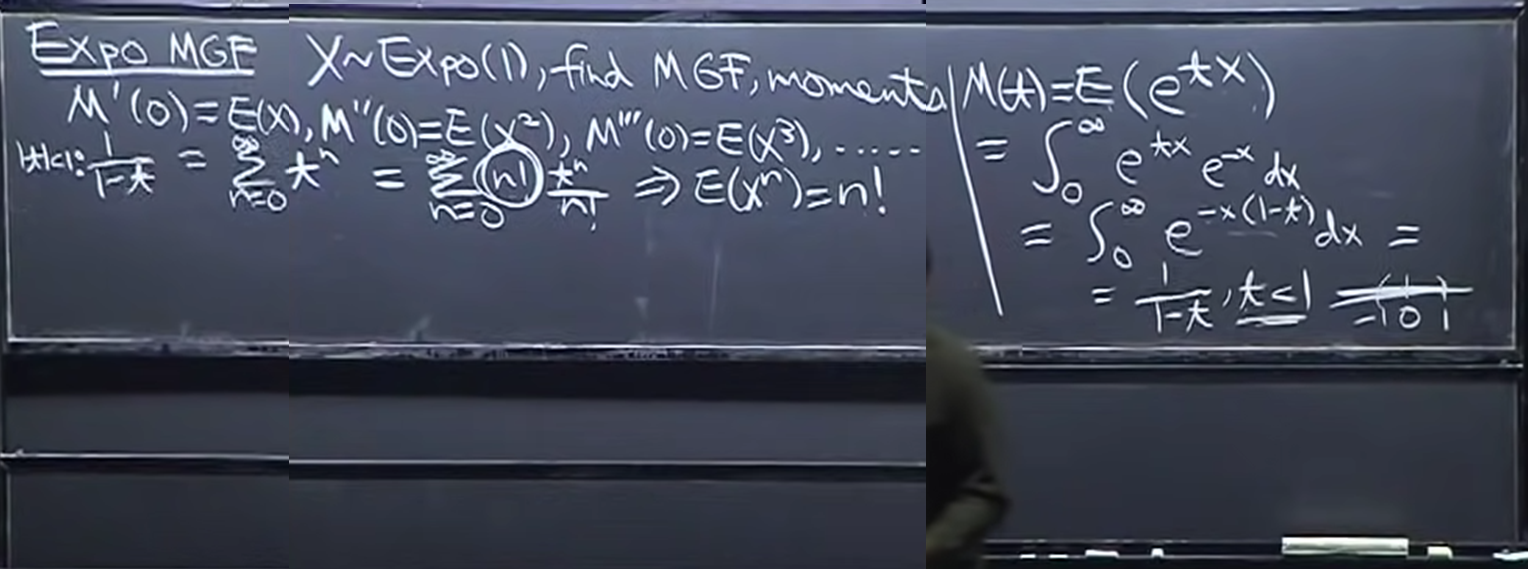 Expo MGF X~Expo(1), find MGF, moments
M'(0)=E(X), M''(0)=E(X²), M'''(0)=E(X³), .....
|t|<1: 1/(1-t) = ∑_{n=0}^{∞} t^n = ∑_{n=0}^{∞} n! t^n/n! ⇒ E(X^n)=n!
M(t)=E(e^{tX})
= ∫_0^∞ e^{tx} e^{-x} dx
= ∫_0^∞ e^{-x(1-t)} dx =
= 1/(1-t), t<1